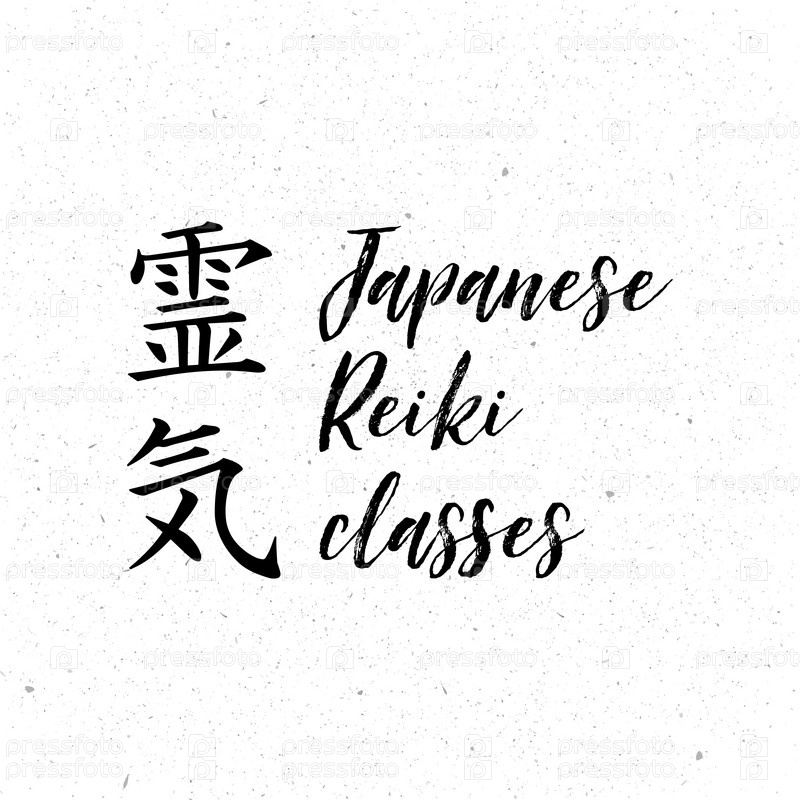 霊気
Japanese
Reiki
classes
pressfoto